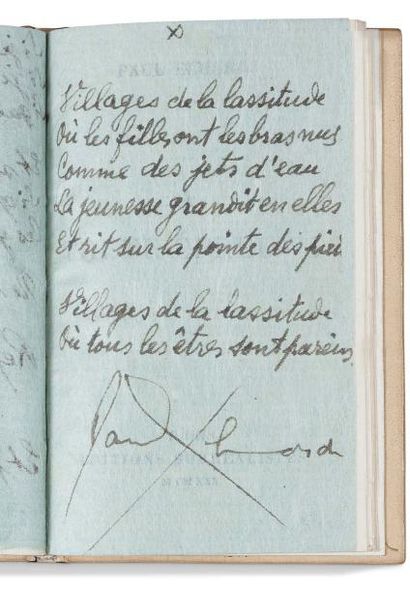 X
PAUL ELUARD
Villages de la lassitude
Où les filles ont les bras nus
Comme des jets d'eau
La jeunesse grandit en elles
Et rit sur la pointe des pieds
Villages de la lassitude
Où tous les êtres sont pareils
Paul Eluard
EDITIONS SURREALISTES